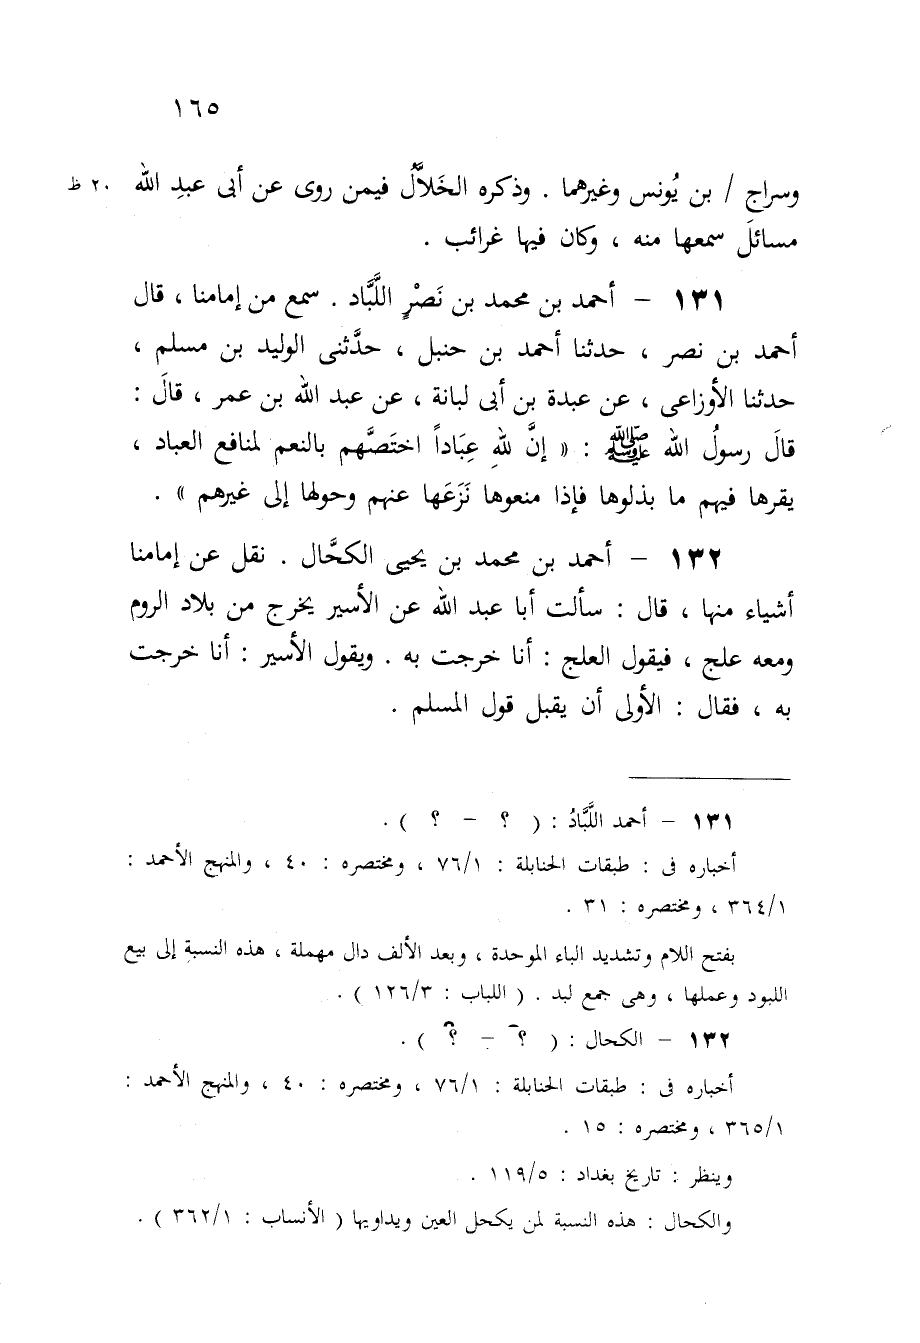 ١٦٥
وسراج / بن يُونس وغيرهما . وذكره الخَلاَّلُ فيمن روى عن أبى عبدِ الله ٢٠ ظ
مسائلَ سمعها منه ، وكان فيها غرائب .
١٣١ – أحمد بن محمد بن نَصْرٍ اللَّبَّاد . سمع من إمامنا ، قال
أحمد بن نصر ، حدثنا أحمد بن حنبل ، حدَّثنى الوليد بن مسلم ،
حدثنا الأوزاعى ، عن عبدة بن أبى لبانة ، عن عبد الله بن عمر ، قالَ :
قالَ رسولُ الله ﷺ : « إنَّ للهِ عِبَاداً اختَصَّهم بالنعم لمنافع العباد ،
يقرها فيهم ما بذلوها فإذا منعوها نَزَعَها عنهم وحولها إلى غيرهم » .
١٣٢ – أحمد بن محمد بن يحيى الكحَّال . نقل عن إمامنا
أشياء منها ، قال : سألت أبا عبد الله عن الأسير يخرج من بلاد الروم
ومعه علج ، فيقول العلج : أنا خرجت به . ويقول الأسير : أنا خرجت
به ، فقال : الأولى أن يقبل قول المسلم .
١٣١ – أحمد اللَّبَّادُ : ( ؟ – ؟ ) .
أخباره فى : طبقات الحنابلة : ٧٦/١ ، ومختصره : ٤٠ ، والمنهج الأحمد :
٣٦٤/١ ، ومختصره : ٣١ .
بفتح اللام وتشديد الباء الموحدة ، وبعد الألف دال مهملة ، هذه النسبة إلى بيع
اللبود وعملها ، وهى جمع لبد . ( اللباب : ١٢٦/٣ ) .
١٣٢ – الكحال : ( ؟ – ؟ ) .
أخباره فى : طبقات الحنابلة : ٧٦/١ ، ومختصره : ٤٠ ، والمنهج الأحمد :
٣٦٥/١ ، ومختصره : ١٥ .
وينظر : تاريخ بغداد : ١١٩/٥ .
والكحال : هذه النسبة لمن يكحل العين ويداويها ( الأنساب : ٣٦٢/١ ) .